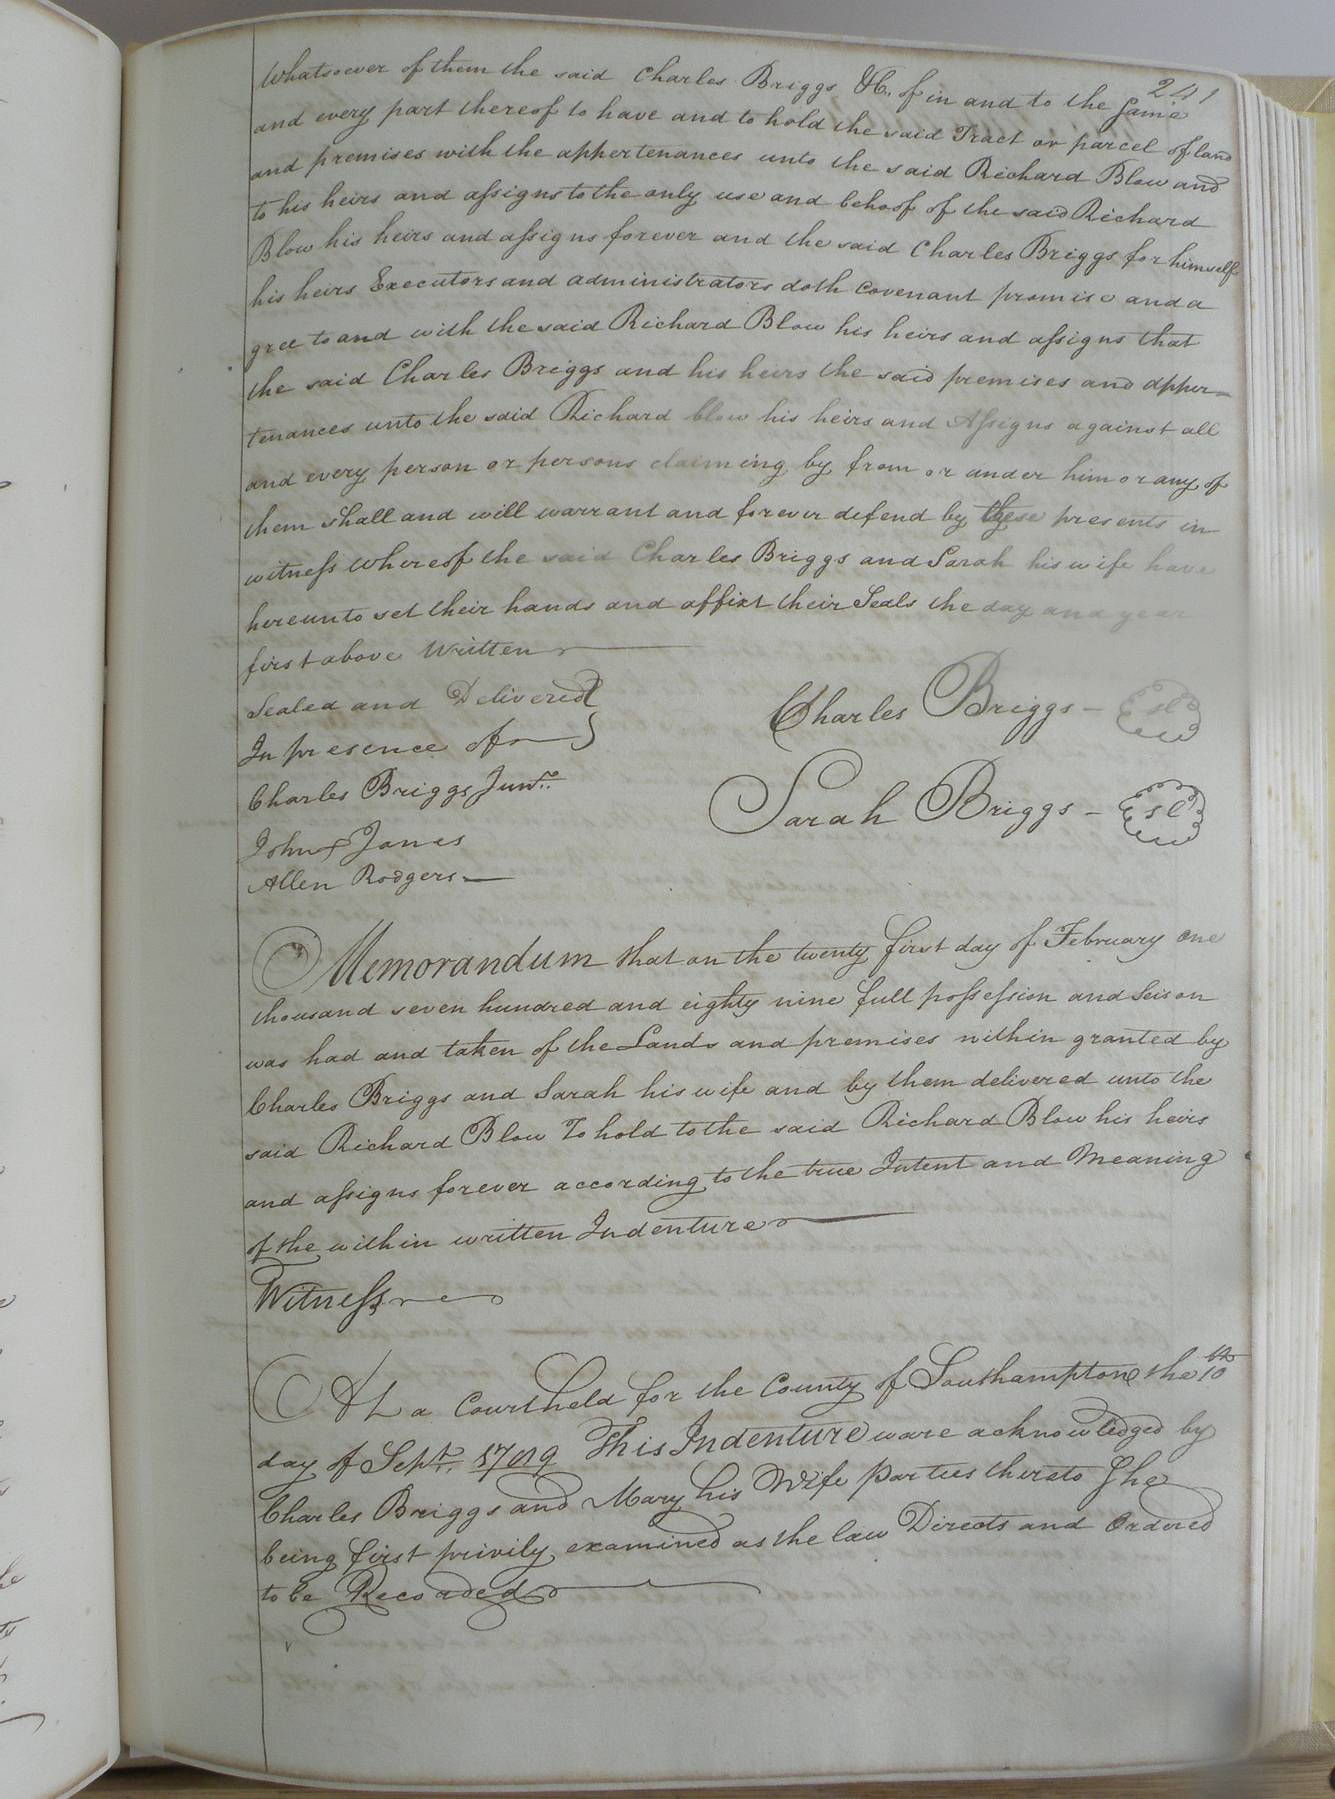 241
Whatsoever of them the said Charles Briggs &C. of in and to the Same
and every part thereof to have and to hold the said Tract or parcel of land
and premises with the appertenances unto the said Richard Blow and
to his heirs and assigns to the only use and behoof of the said Richard
Blow his heirs and assigns forever and the said Charles Briggs for himself
his heirs Executors and administrators doth covenant promise and a
gree to and with the said Richard Blow his heirs and assigns that
the said Charles Briggs and his heirs the said premises and apper=
tenances unto the said Richard blow his heirs and Assigns against all
and every person or persons claiming by from or under him or any of
them shall and will warrant and forever defend by these presents in
witness whereof the said Charles Briggs and Sarah his wife have
hereunto set their hands and affixt their Seals the day and year
first above Written
Sealed and Delivered
In presence of
Charles Briggs Junr.
John Jones
Allen Rodgers
Charles Briggs - sl
Sarah Briggs - sl
Memorandum that on the twenty first day of February one
thousand seven hundred and eighty nine full possession and Seison
was had and taken of the Lands and premises within granted by
Charles Briggs and Sarah his wife and by them delivered unto the
said Richard Blow To hold to the said Richard Blow his heirs
and assigns forever according to the true Intent and Meaning
of the within written Indenture
Witness
At a Court held for the County of Southampton the 10th
day of Sept. 1789 This Indenture ware acknowledged by
Charles Briggs and Mary his Wife parties thereto She
being first privily examined as the law Directs and Ordered
to be Recorded